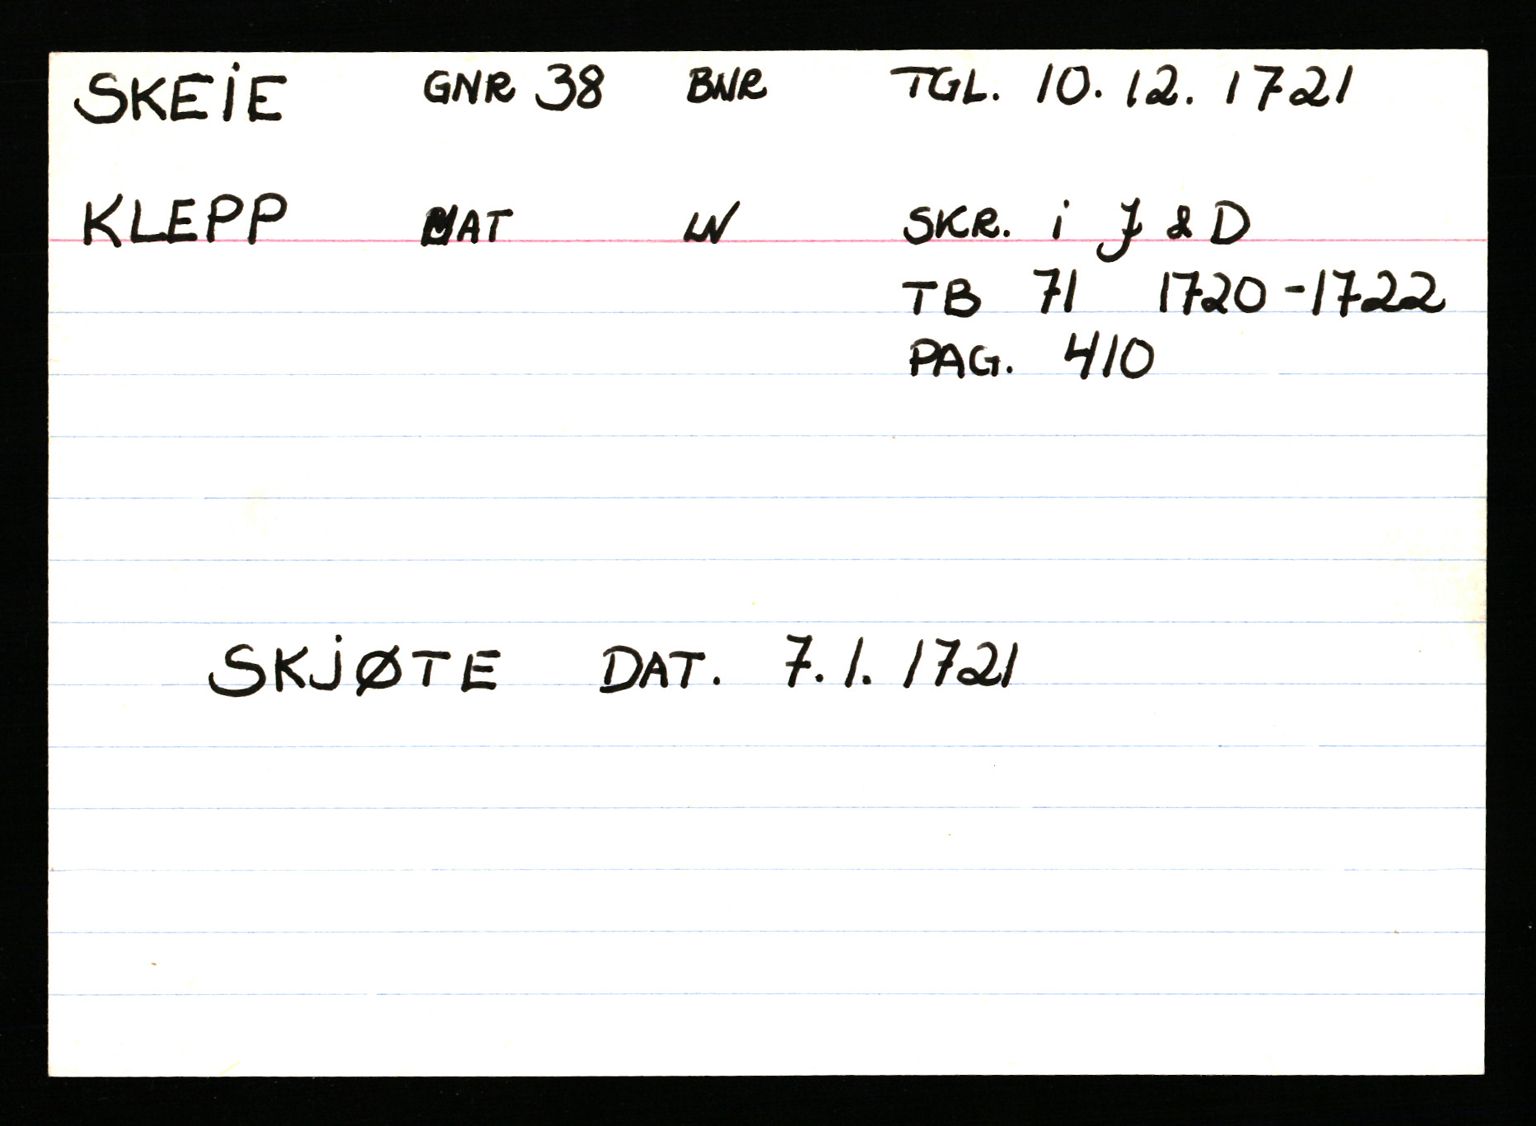 SKEIE GNR 38 BNR TGL. 10. 12. 1721
KLEPP MAT LN SKR. i J & D
TB 71 1720-1722
PAG. 410
SKJØTE DAT. 7. 1. 1721